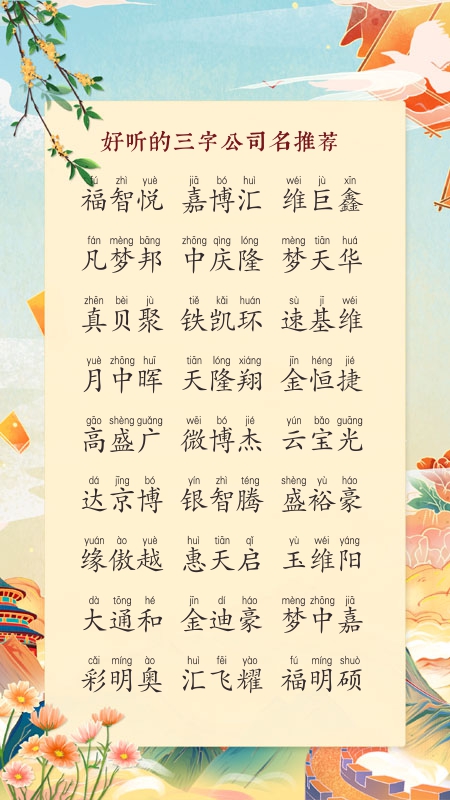 好听的三字公司名推荐
fú zhì yuè jiā bó huì wéi jù xīn
福智悦 嘉博汇 维巨鑫
fán mèng bāng zhōng qìng lóng mèng tiān huá
凡梦邦 中庆隆 梦天华
zhēn bèi jù tiě kǎi huán sù jī wéi
真贝聚 铁凯环 速基维
yuè zhōng huī tiān lóng xiáng jīn héng jié
月中晖 天隆翔 金恒捷
gāo shèng guǎng wēi bó jié yún bǎo guāng
高盛广 微博杰 云宝光
dá jīng bó yín zhì téng shèng yù háo
达京博 银智腾 盛裕豪
yuán ào yuè huì tiān qǐ yù wéi yáng
缘傲越 惠天启 玉维阳
dà tōng hé jīn dí háo mèng zhōng jiā
大通和 金迪豪 梦中嘉
cǎi míng ào huì fēi yào fú míng shuò
彩明奥 汇飞耀 福明硕